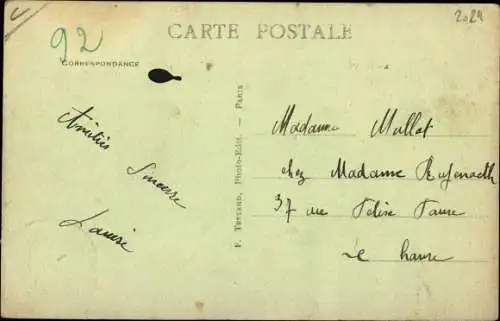 2024
92
CARTE POSTALE
CORRESPONDANCE
Amitiés
Sincère
F. TESTARD, Photo-Edit. — PARIS
Madame Mallat
chez Madame
37 rue Félix Faure
Le havre